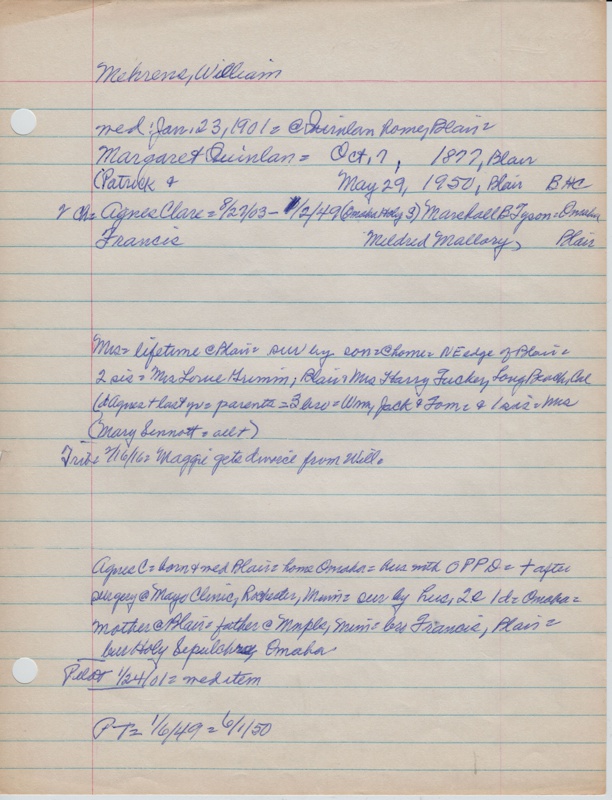 Mehrens, William
med: Jan. 23, 1901 = @ Quinlan home, Blair =
Margaret Quinlan = Oct. 7, 1877, Blair
(Patrick & May 29, 1950, Blair BHC
2 Ch = Agnes Clare = 8/27/03 - 1/2/49 (Omaha Holy S) Marshall B. Tyson = Omaha
Francis Mildred Mallory, Blair
Mrs = lifetime @ Blair = sur by son = @ home = NE edge of Blair =
2 sis = Mrs Lorue Grimm, Blair & Mrs Harry Tucker, Long Beach, Cal
(d Agnes + last yr = parents = 3 bro = Wm, Jack & Tom = & 1 sis = Mrs
(Mary Sennott = all +)
Trib = 2/16/16 = Maggie gets divorce from Will =
Agnes C = born & med Blair = home Omaha = hus with OPPD = + after
surgery @ Mayo Clinic, Rochester, Minn = sur by hus, 2 1d = Omaha =
mother @ Blair = father @ Mnpls, Minn = bro Francis, Blair =
bur Holy Sepulchre, Omaha
Pilot 1/24/01 = med item
P-T = 1/6/49 = 6/1/50